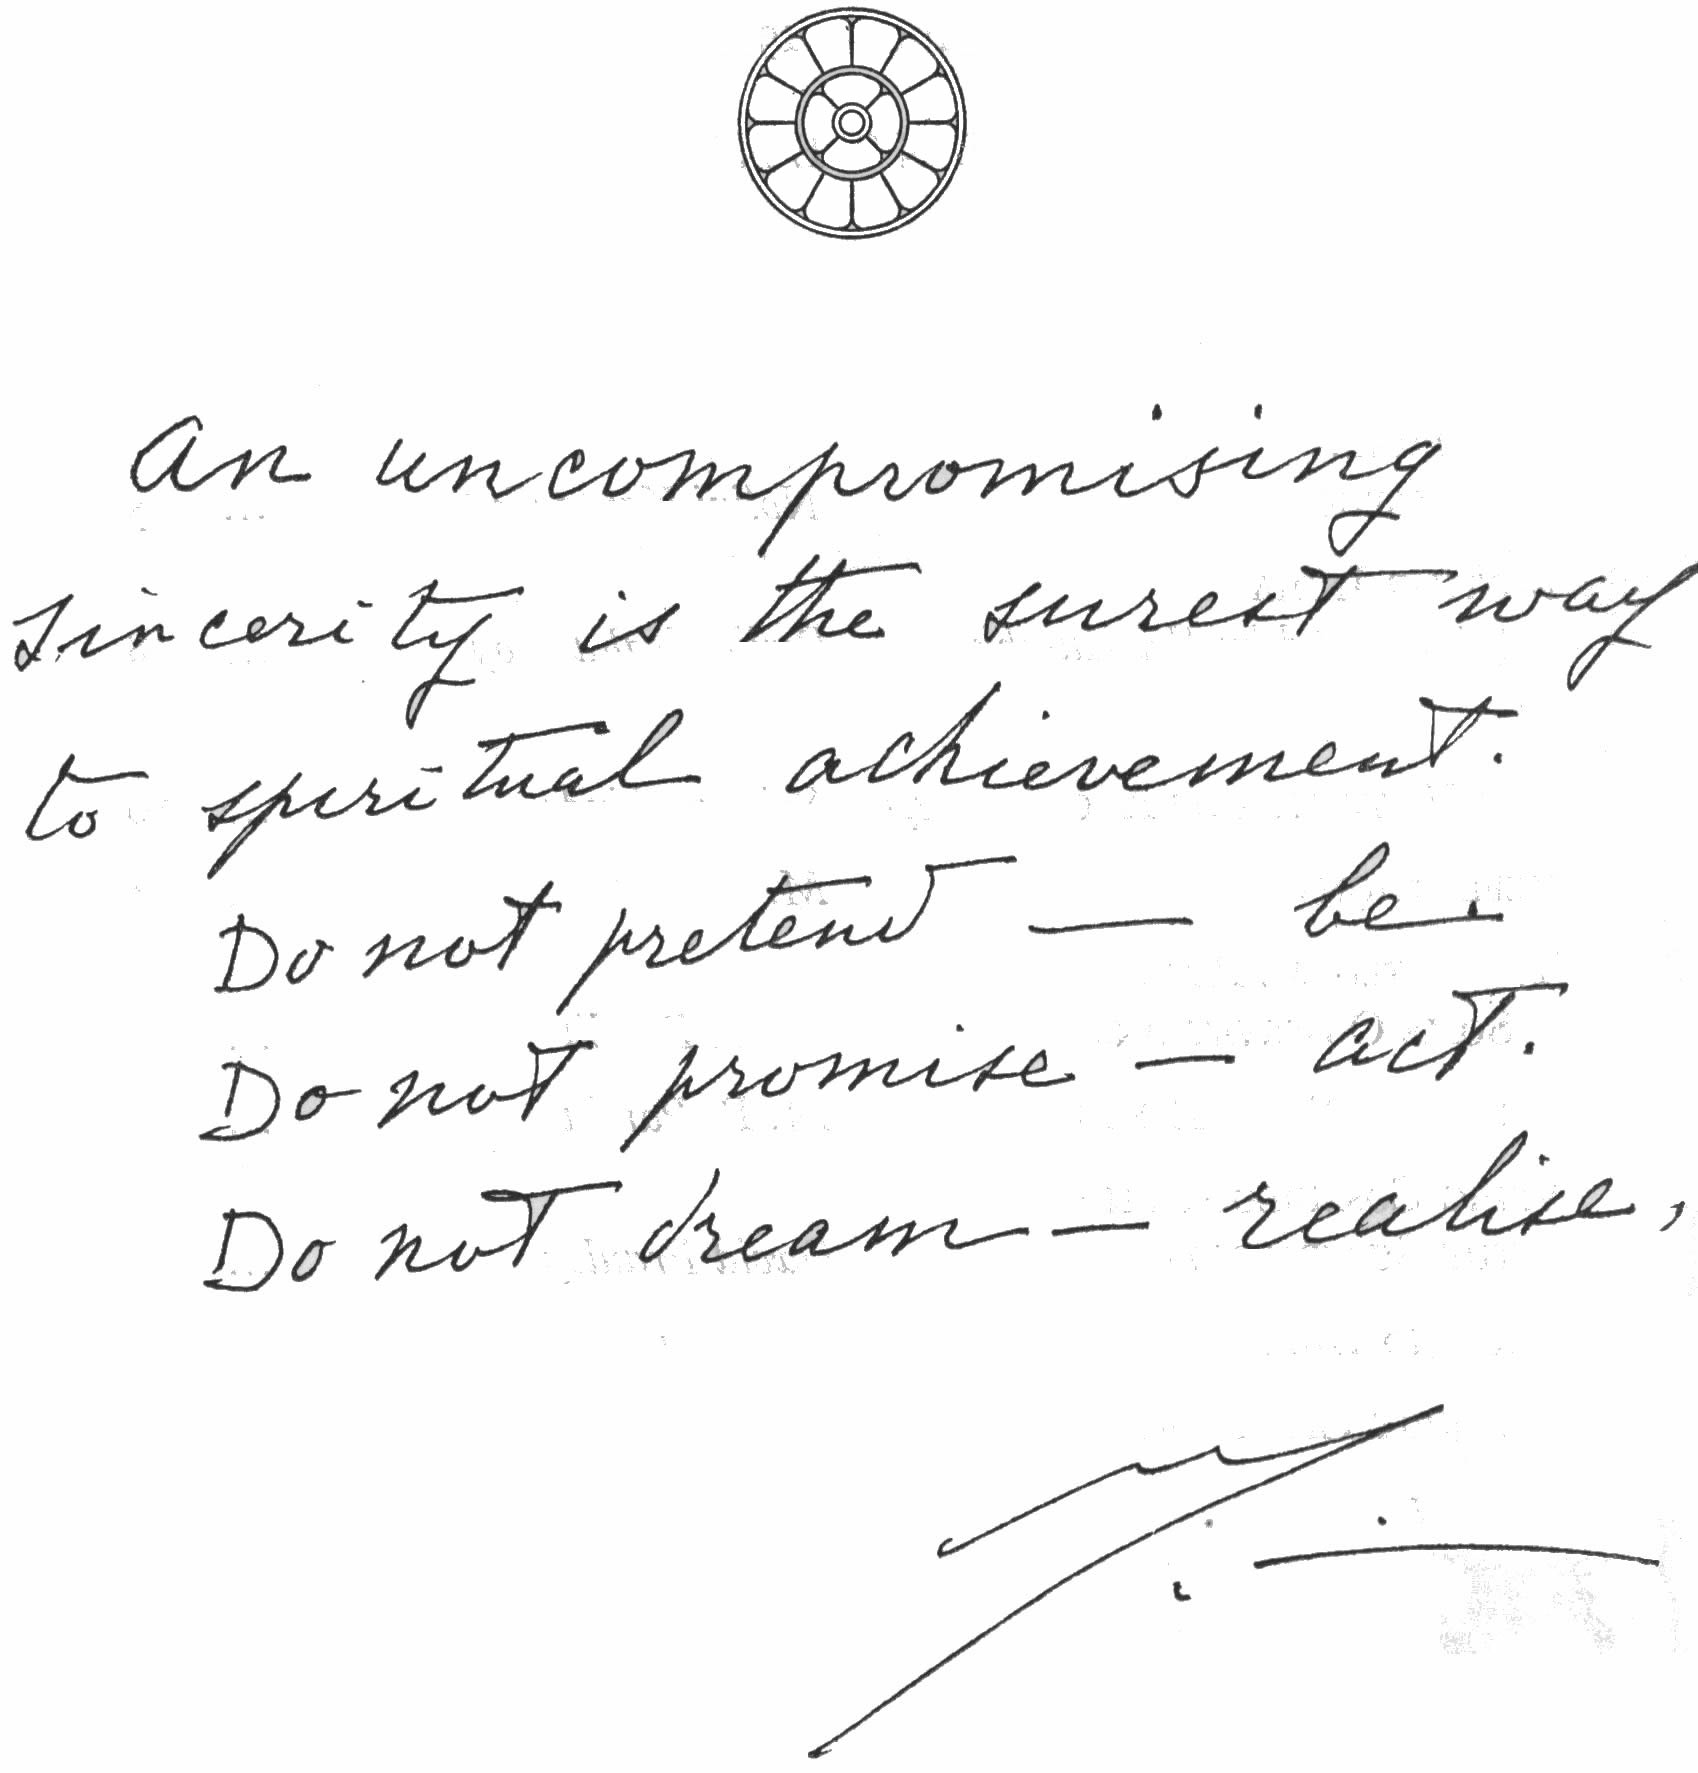 An uncompromising
sincerity is the surest way
to spiritual achievement.
Do not pretend — be.
Do not promise — act.
Do not dream — realise.